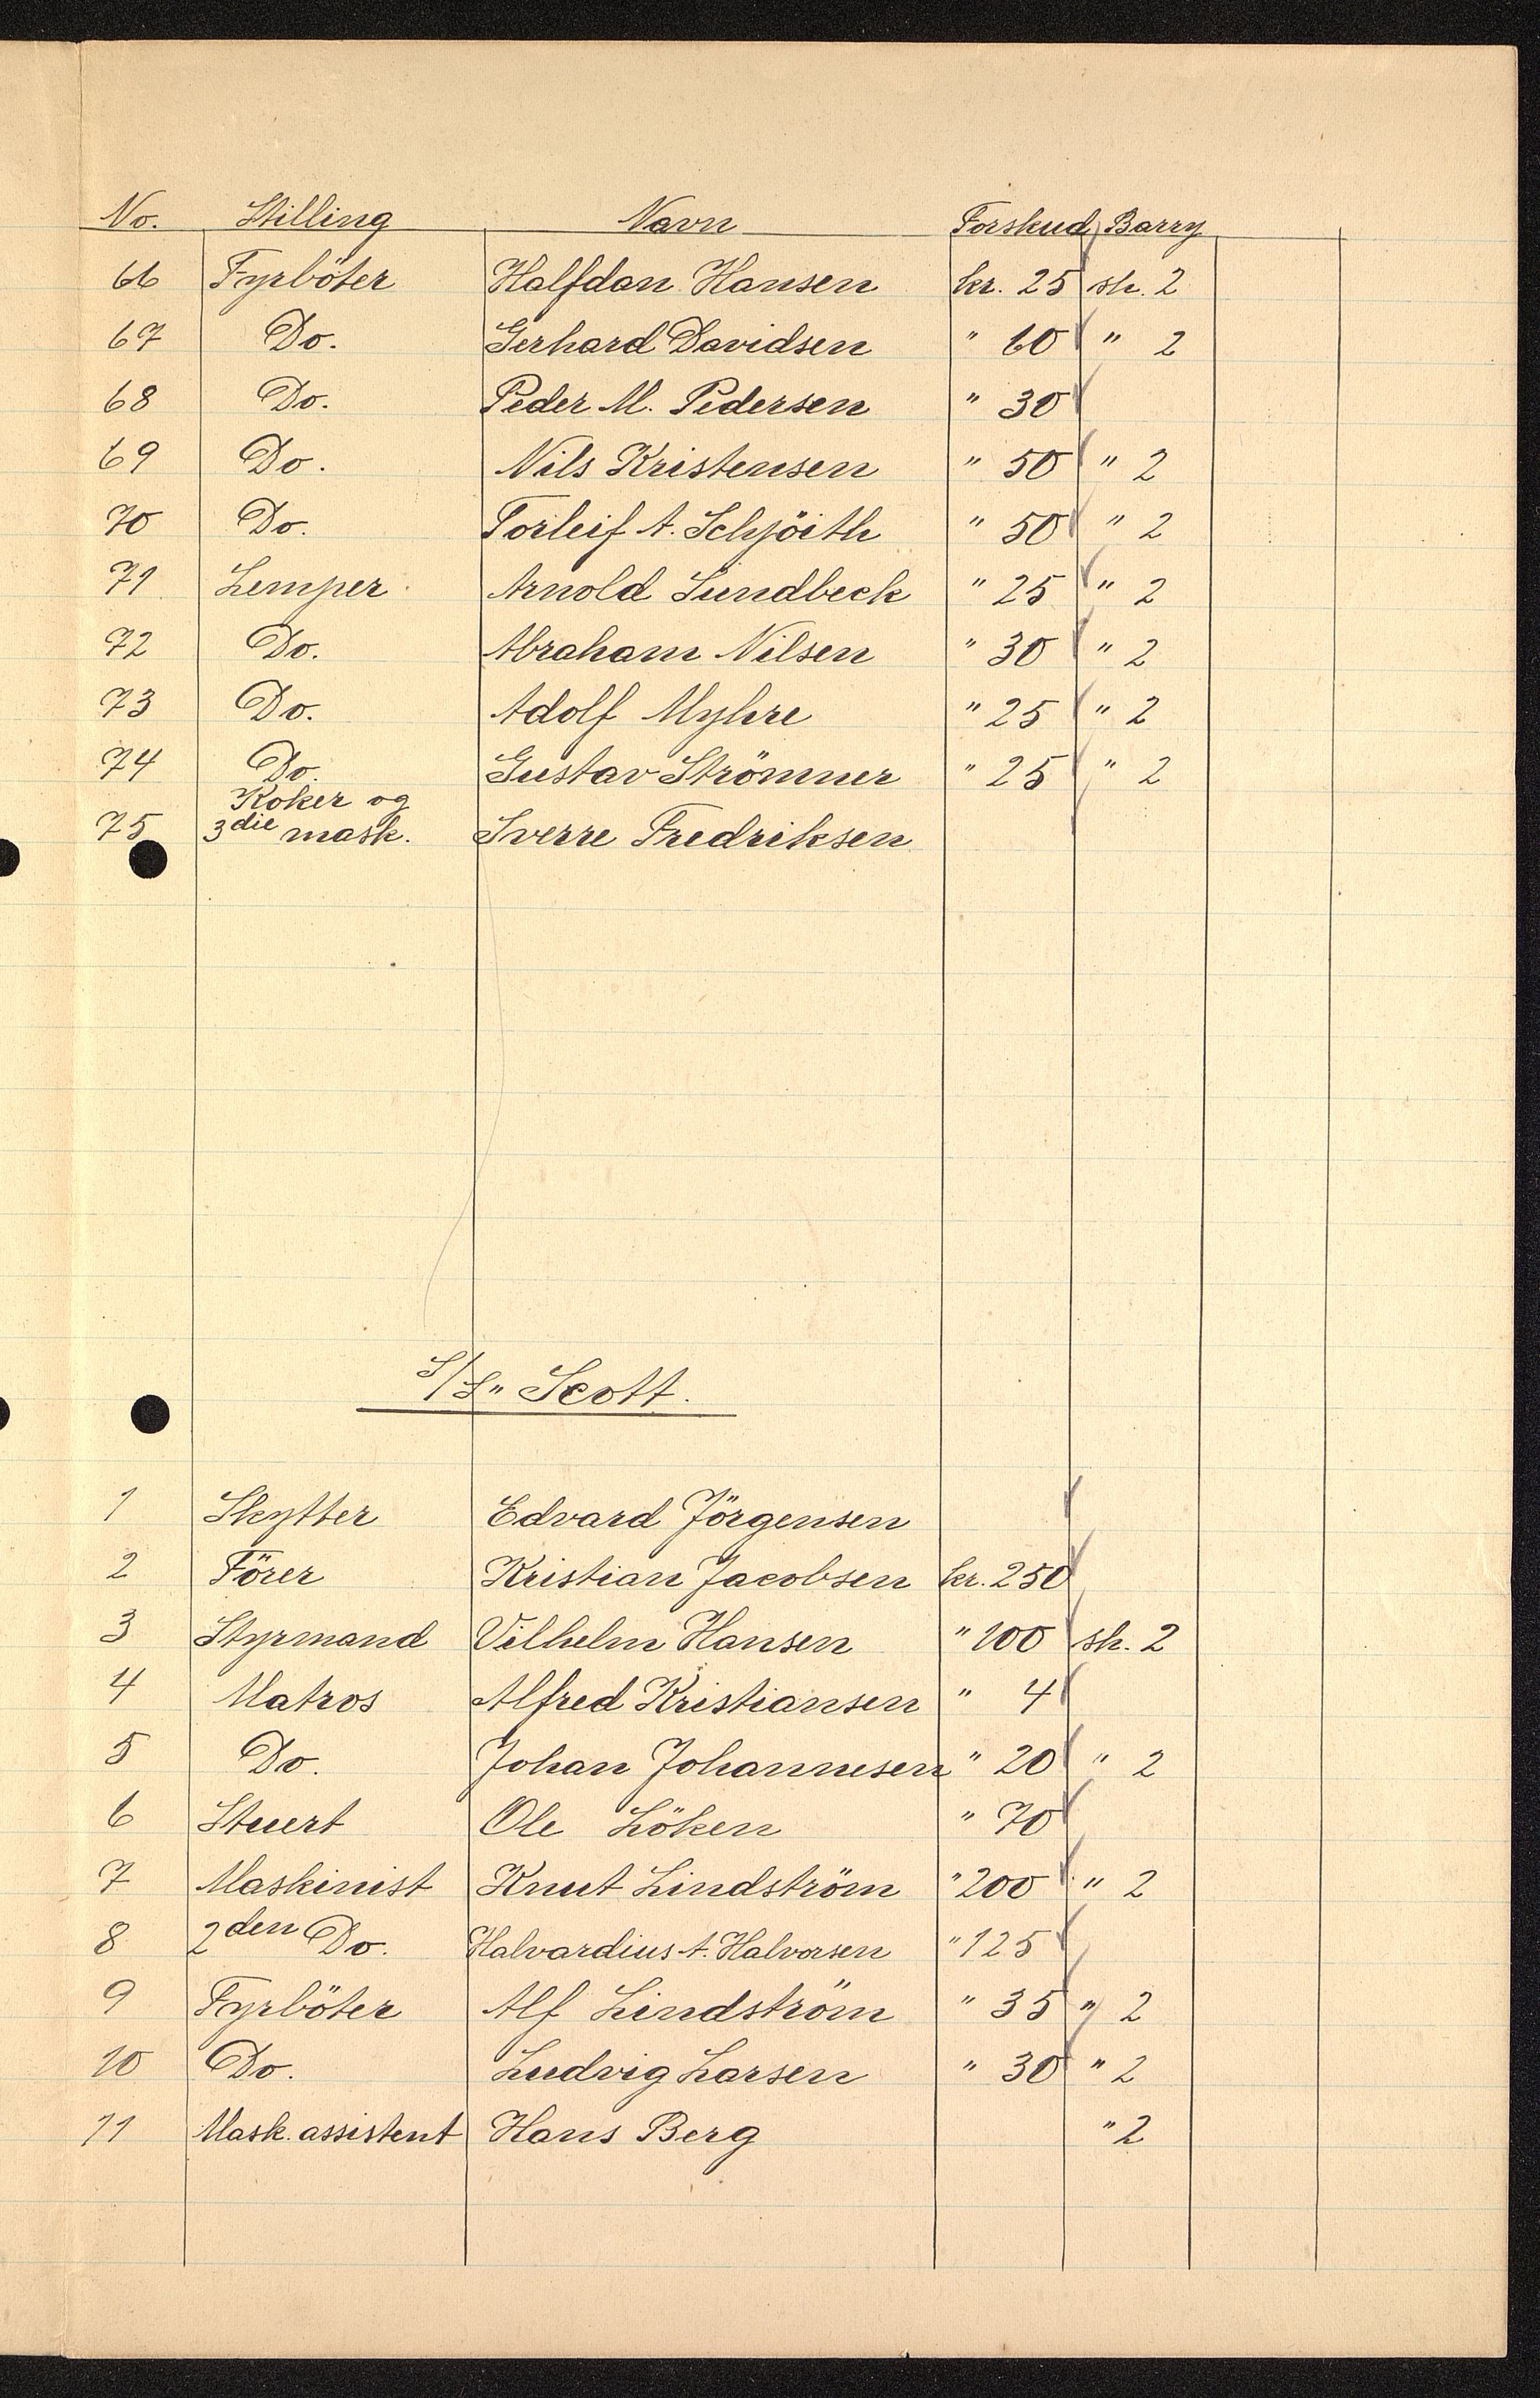 No. Stilling Navn Forskud Barry
66 Fyrböter Halfdan Hansen kr. 25 sh. 2
67 Do. Gerhard Davidsen " 60 " 2
68 Do. Peder M. Pedersen " 30
69 Do. Nils Kristensen " 50 " 2
70 Do. Torleif A. Schjöith " 50 " 2
71 Lemper Arnold Lundbeck " 25 " 2
72 Do. Abraham Nilsen " 30 " 2
73 Do. Adolf Myhre " 25 " 2
74 Do. Gustav Strömner " 25 " 2
Koker og
75 3die mask. Sverre Fredriksen
S/S " Scott.
1 Skytter Edvard Jörgensen
2 Förer Kristian Jacobsen kr. 250
3 Styrmand Vilhelm Hansen " 100 sh. 2
4 Matros Alfred Kristiansen " 4
5 Do. Johan Johannesen " 20 " 2
6 Stuert Ole Löken " 70
7 Maskinist Knut Lindström " 200 " 2
8 2den Do. Halvardius A. Halvorsen " 125
9 Fyrböter Alf Lindström " 35 " 2
10 Do. Ludvig Larsen " 30 " 2
11 Mask. assistent Hans Berg " 2